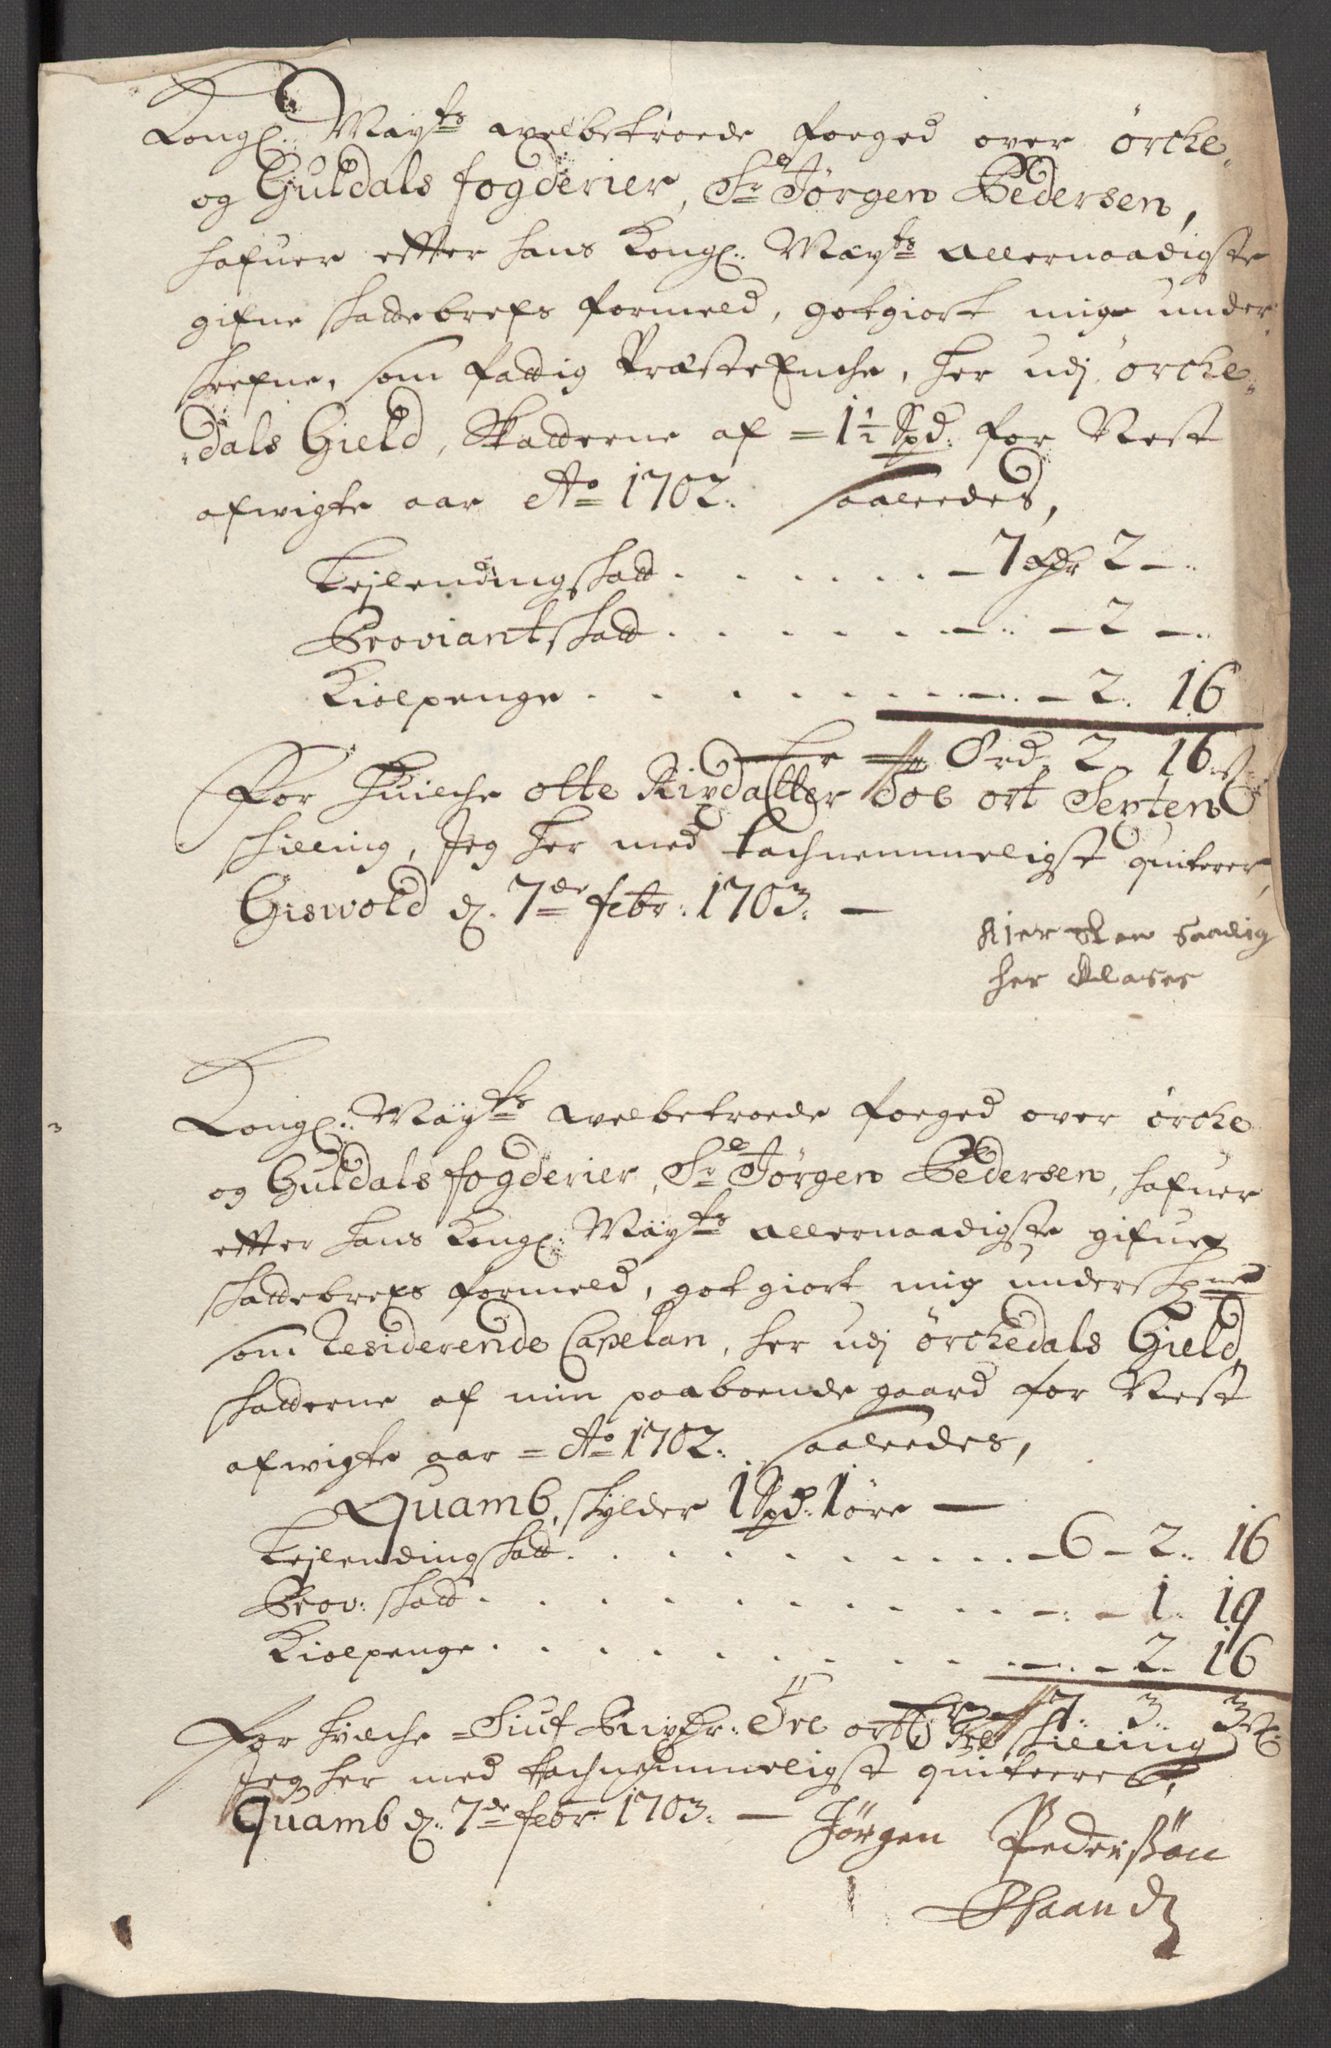 Kongl: Mayts welbetroede foeged over Örche-
og Guldals fogderier, Sr Jörgen Pedersen,
hafuer effter hans Kongl: Mayts allernaadigste
gifne skattebrefs formeld, gotgiort mig under
skrefne, som fattig PræsteEncke, her udj Örche-
dals Gield, Skatterne af = 1½ Spd: for Nest
afvigte aar Ao 1702. saaledes,
Lejlendingskatt . . . . . . 7 Rdr 2 —
Proviantskatt . . . . . . — 2 —
Kiolpenge . . . . . . — 2. 16
Er 8 Ord. 2. 16 s.
For huilche otte Rixdaller Toe ort Sexten
skilling, Jeg her med tachnemmeligst quiterer,
Giswold d. 7de febr: 1703. —
Kiersten Saalig
her Clases
Kongl: Mayts welbetroede foeged over Örche
og Guldals fogderier, Sr Jörgen Pedersen, hafuer
effter hans Kongl: Mayts allernaadigste gifue
skattebrefs formeld, gotgiort mig underskne
som Residerende Capelan, her udj Örchedals Gield,
skatterne af min paaboende gaard for Nest
afvigte aar = Ao 1702. saaledes,
Quamb, skylder 1 Spd: 1 öre —
Lejlendingskatt . . . . . . — 6 — 2. 16
Prov: skatt . . . . . . — 1. 19
Kiolpenge . . . . . . — 2. 16
Er 7. 3. 3 s.
For huilche Siuf Rixdr: Tre ort Tre skilling
Jeg her med tachnemmeligst quitterer,
Quamb d. 7de febr 1703. — Jörgen Pederssön
Skaandz